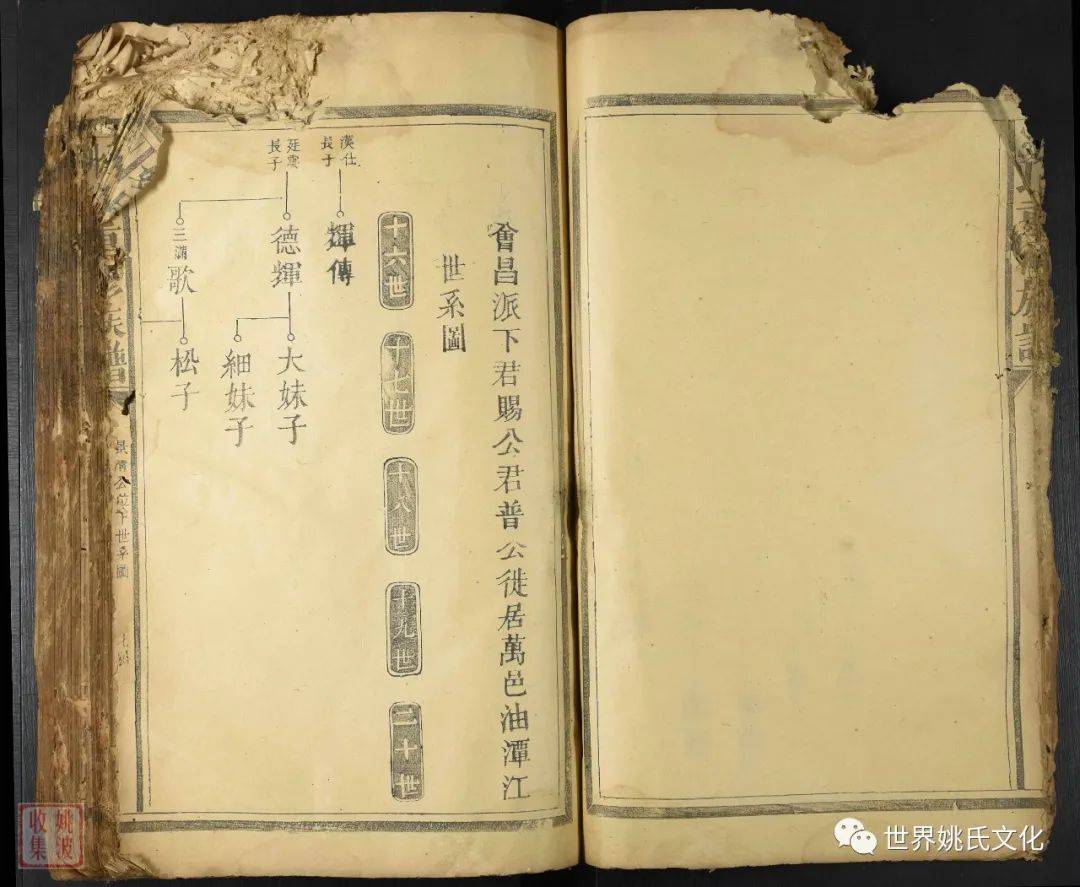 會昌派下君賜公君普公徙居萬邑油潭江
世系圖
十六世
十七世
十八世
十九世
二十世
漢仕
長子
輝傳
廷雲
長子
德輝
大妹子
細妹子
三滿
歌
松子
族譜
姚波
收集
世界姚氏文化